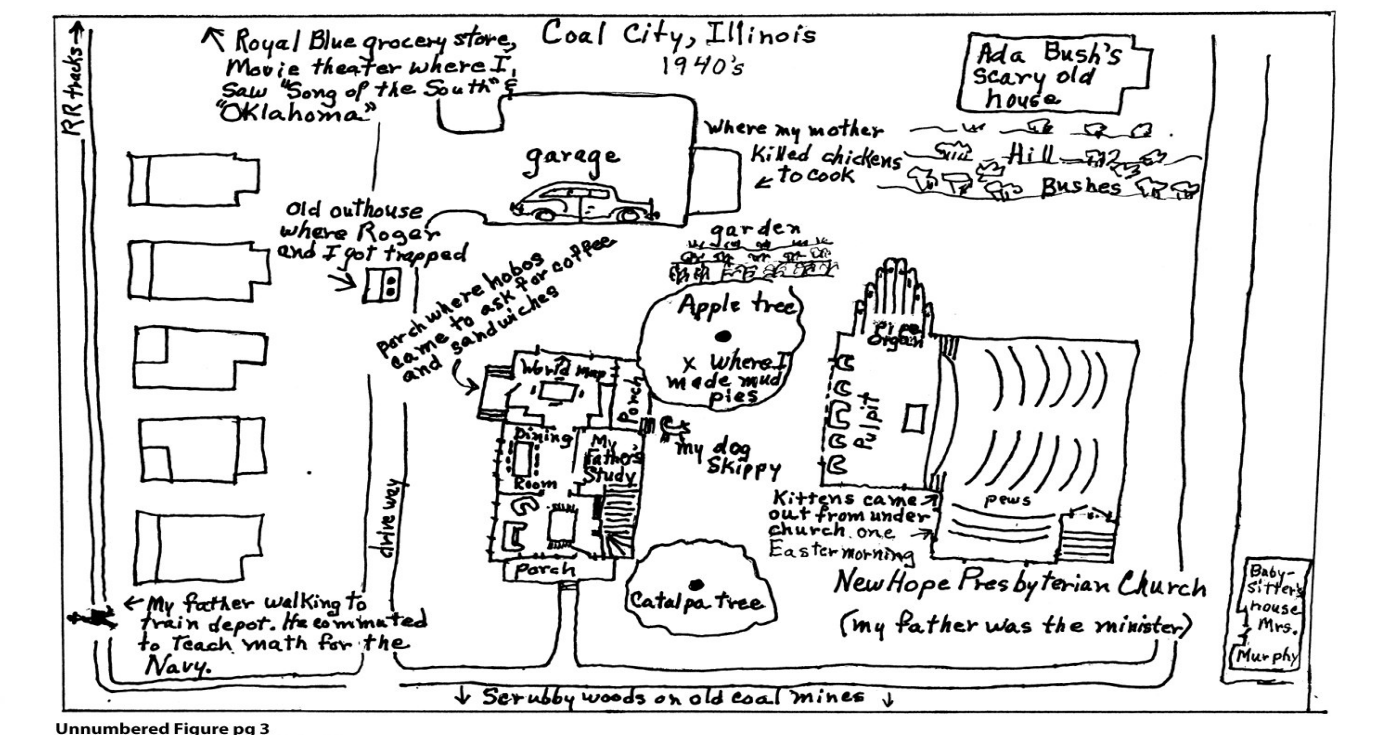 RR tracks →
↖ Royal Blue grocery store,
Movie theater where I
saw "Song of the South" &
"OKlahoma"
Coal City, Illinois
1940's
Ada Bush's
scary old
house
where my mother
killed chickens
to cook
Hill
Bushes
garage
Old outhouse
where Roger
and I got trapped
garden
Porch where hobos
came to ask for coffee
and sandwiches
Apple tree
x where I
made mud
pies
Pipe
organ
Pulpit
World map
Porch
Dining
Room
My
Father's
Study
my dog
Skippy
pews
Kittens came
out from under
church one
Easter morning
driveway
Porch
Catalpa tree
New Hope Presbyterian Church
(my father was the minister)
Baby-
sitter's
house
Mrs.
Murphy
← My father walking to
train depot. He commuted
to Teach math for the
Navy.
↓ Scrubby woods on old coal mines ↓
Unnumbered Figure pg 3